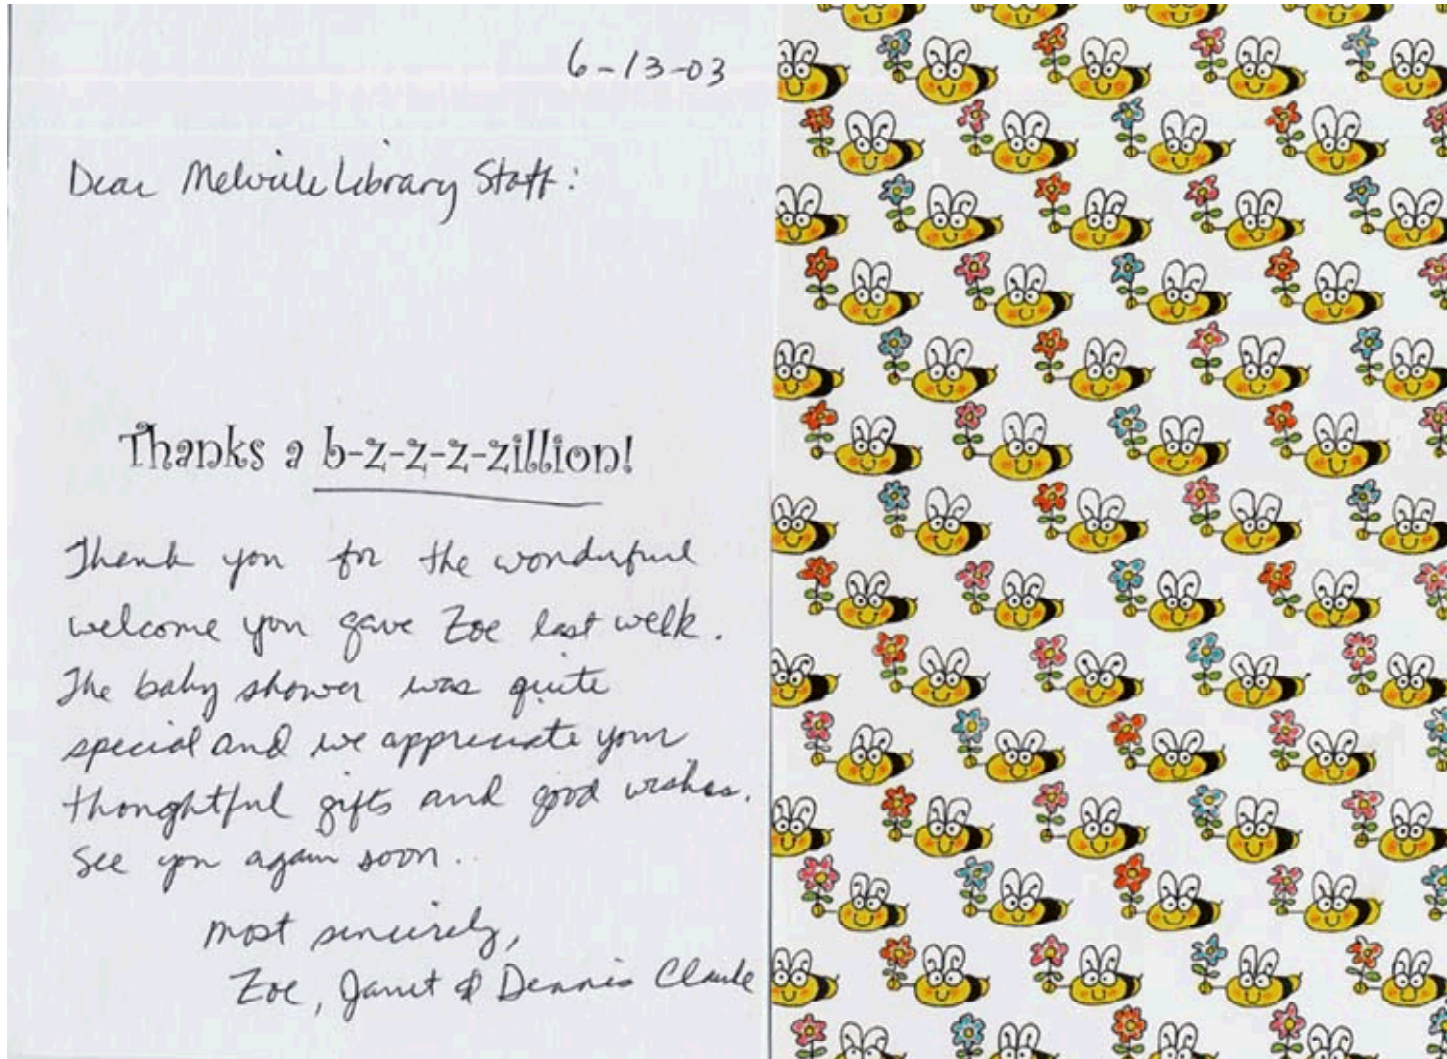 6-13-03
Dear Melville Library Staff:
Thanks a b-z-z-z-zillion!
Thank you for the wonderful
welcome you gave Zoe last week.
The baby shower was quite
special and we appreciate your
thoughtful gifts and good wishes.
See you again soon.
most sincerely,
Zoe, Janet & Dennis Clarke